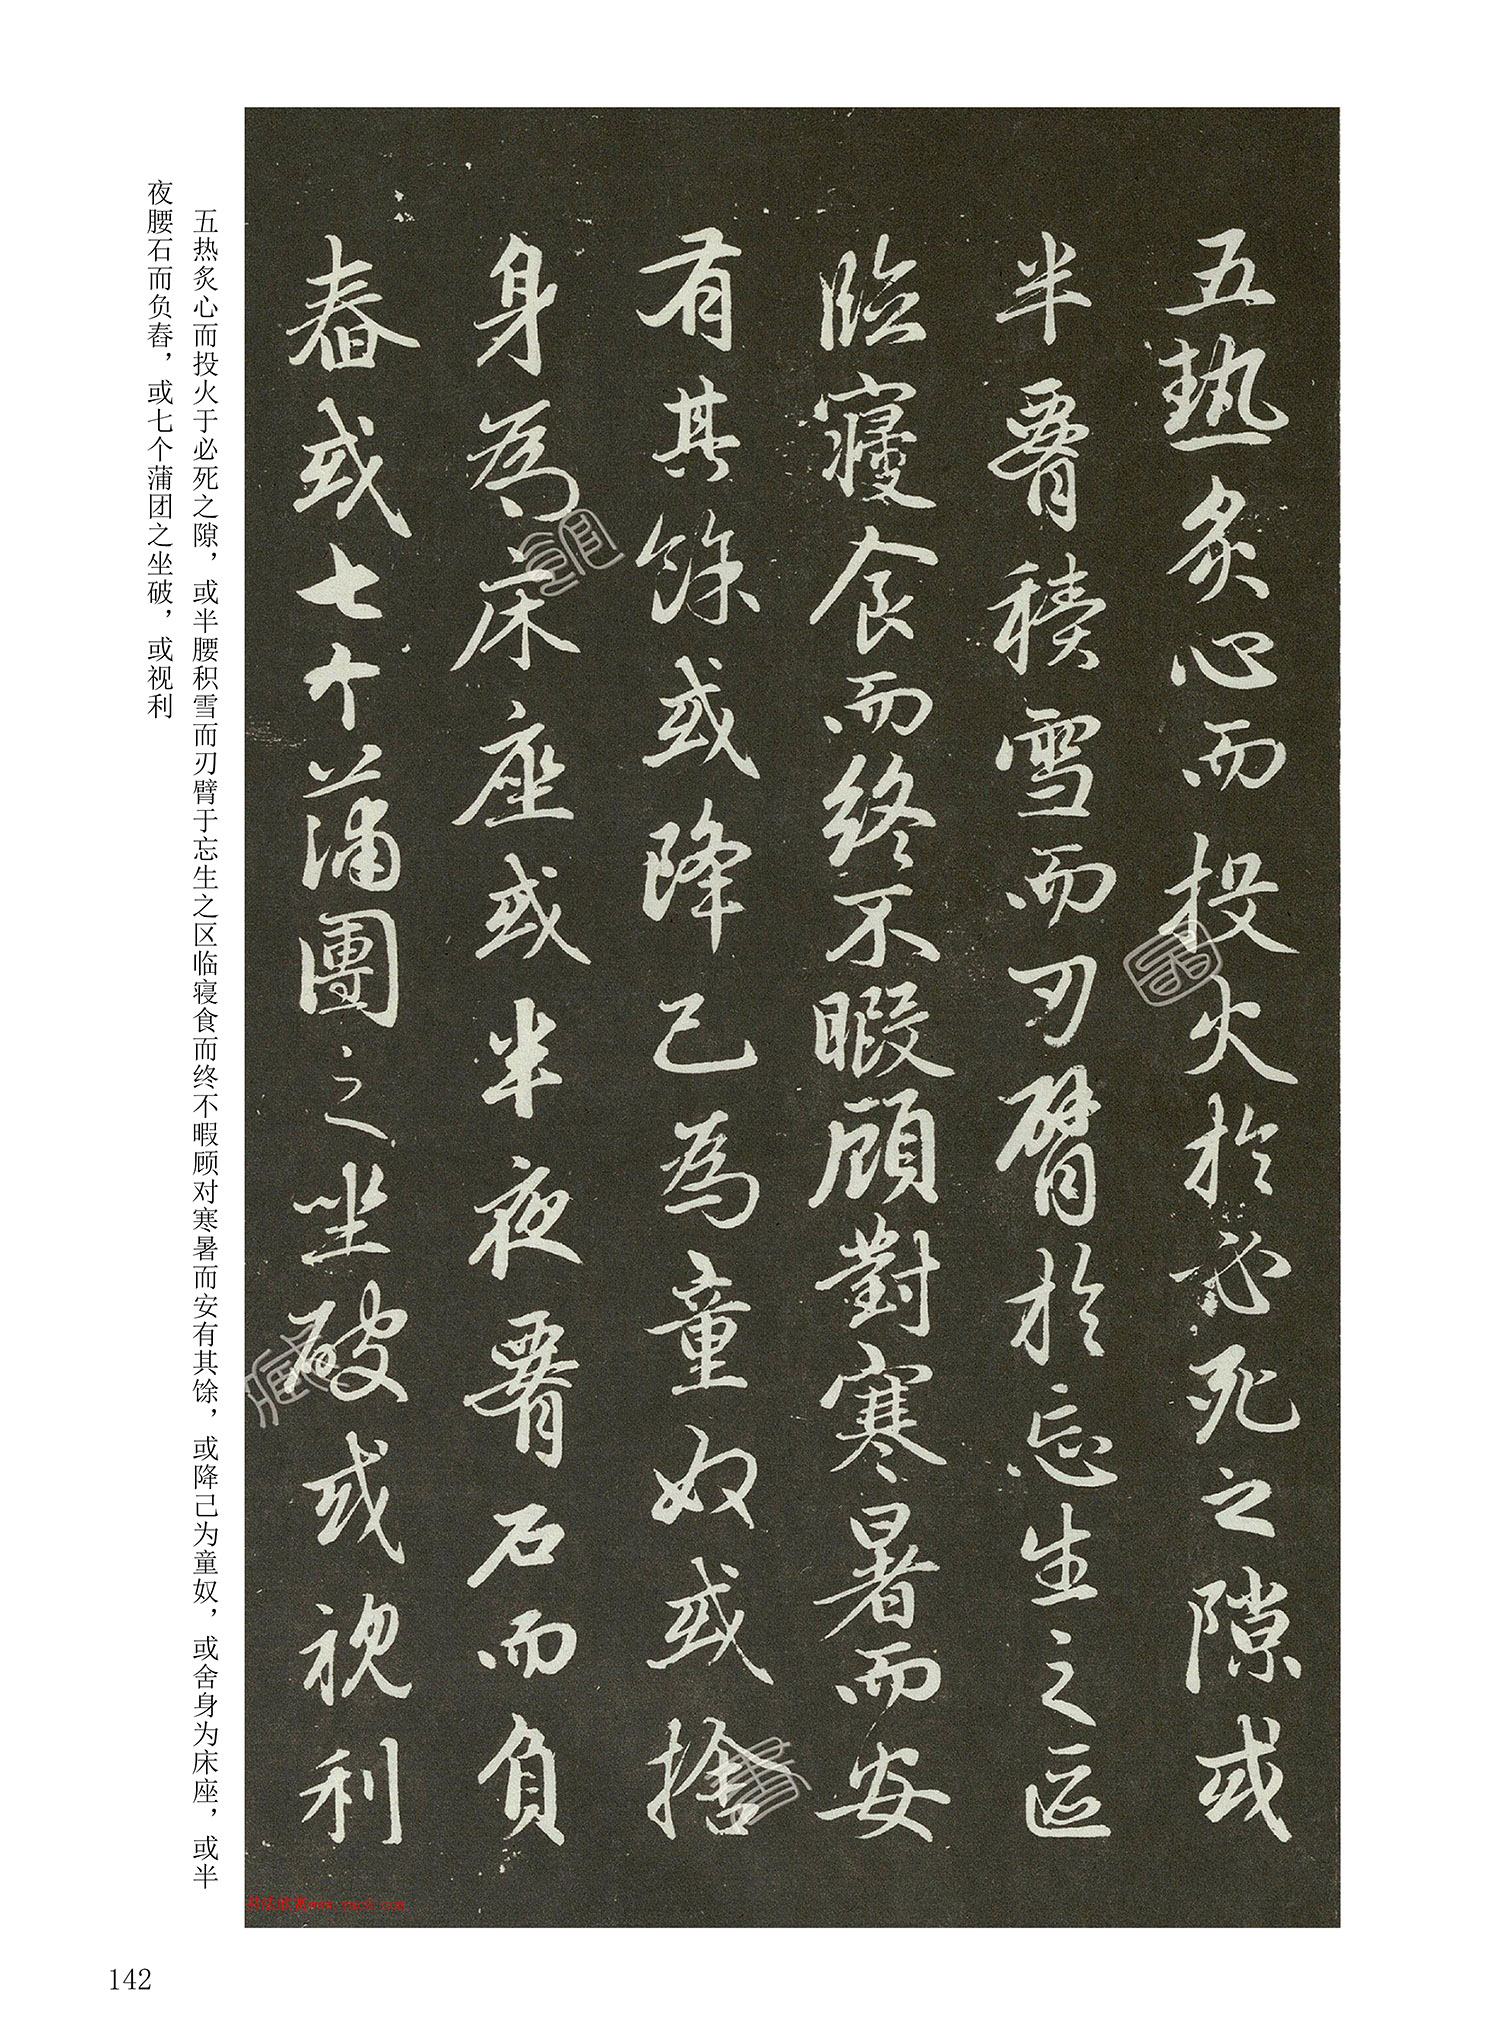 五熱炙心而投火於必死之隙或
半䁂積雪而刃臂於忘生之區
臨寢食而終不暇顧對寒暑而安
有其餘或降己為童奴或捨
身為床座或半夜䁂石而負
舂或七个蒲團之坐破或視利
五热炙心而投火于必死之隙，或半腰积雪而刃臂于忘生之区临寝食而终不暇顾对寒暑而安有其馀，或降己为童奴，或舍身为床座，或半
夜腰石而负舂，或七个蒲团之坐破，或视利
142